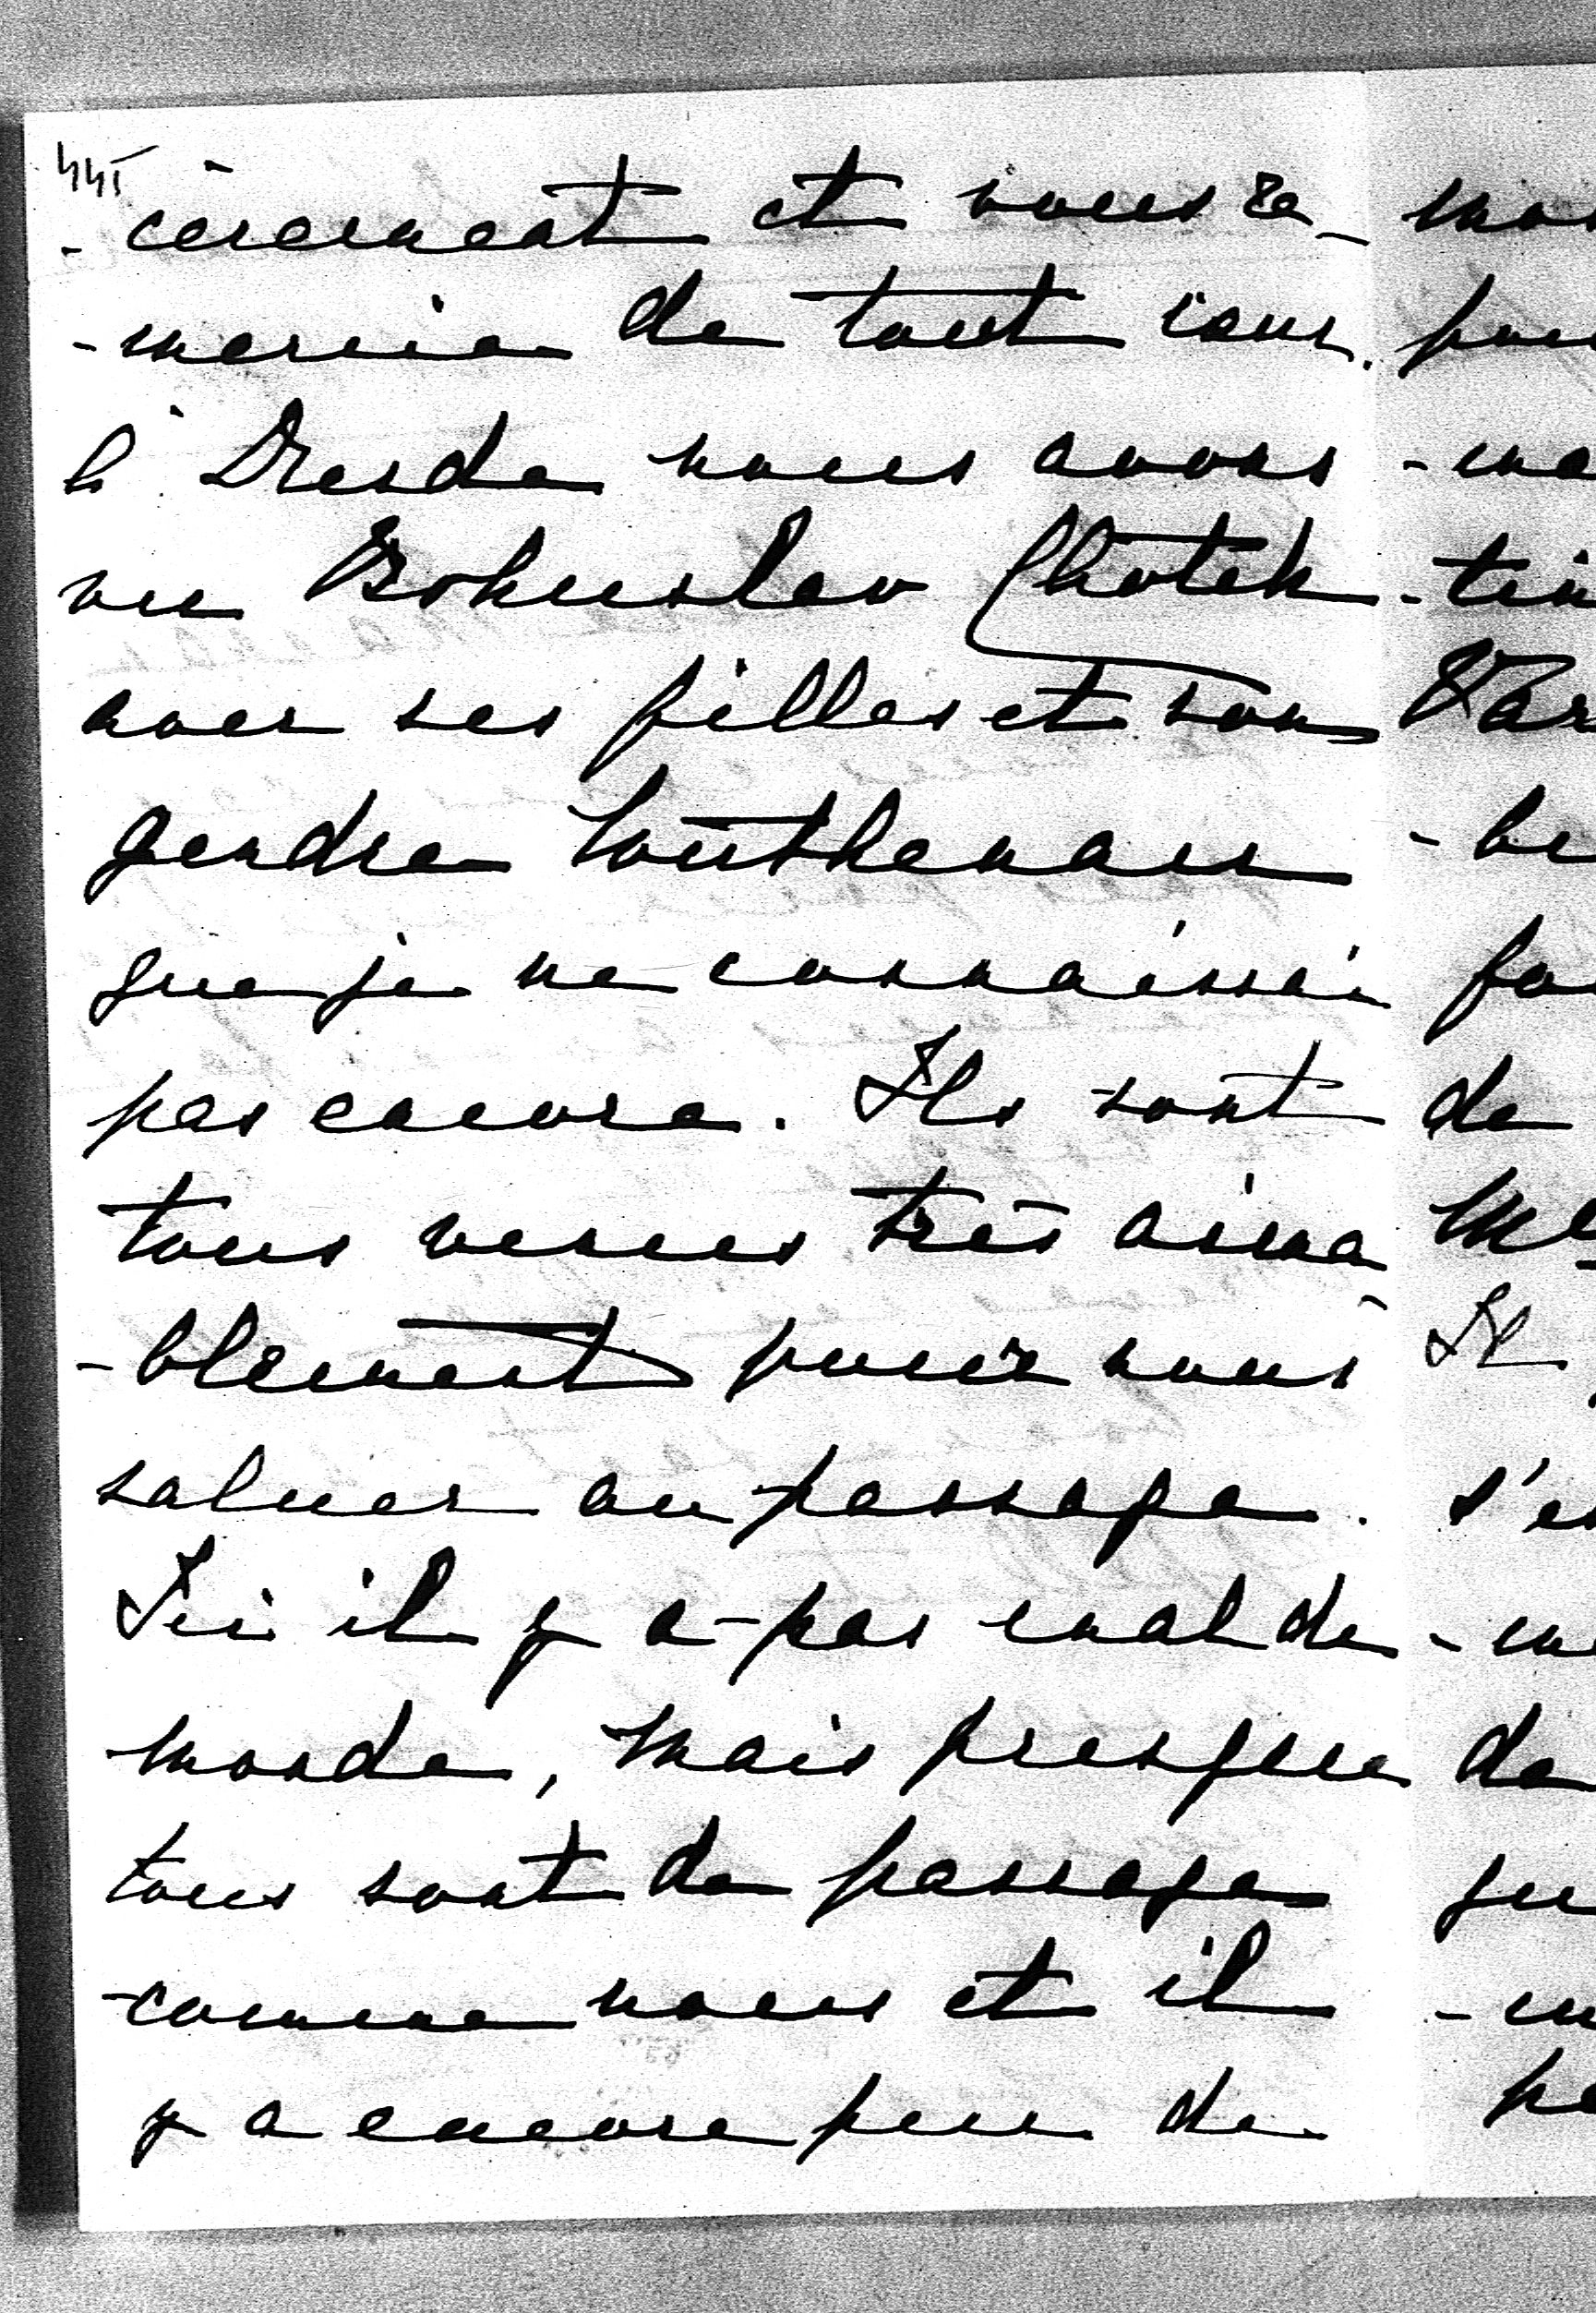 445
-cèrement et vous re-
-mercie de tout cœur.
à Dresde nous avons
vu Bohuslav Chotek
avec ses filles et son
gendre Wuthenau
que je ne connaissais
pas encore. Ils sont
tous venus très aima
-blement pour nous
saluer au passage.
Ici il y a pas mal de
monde, mais presque
tous sont de passage
comme nous et il
y a encore peu de